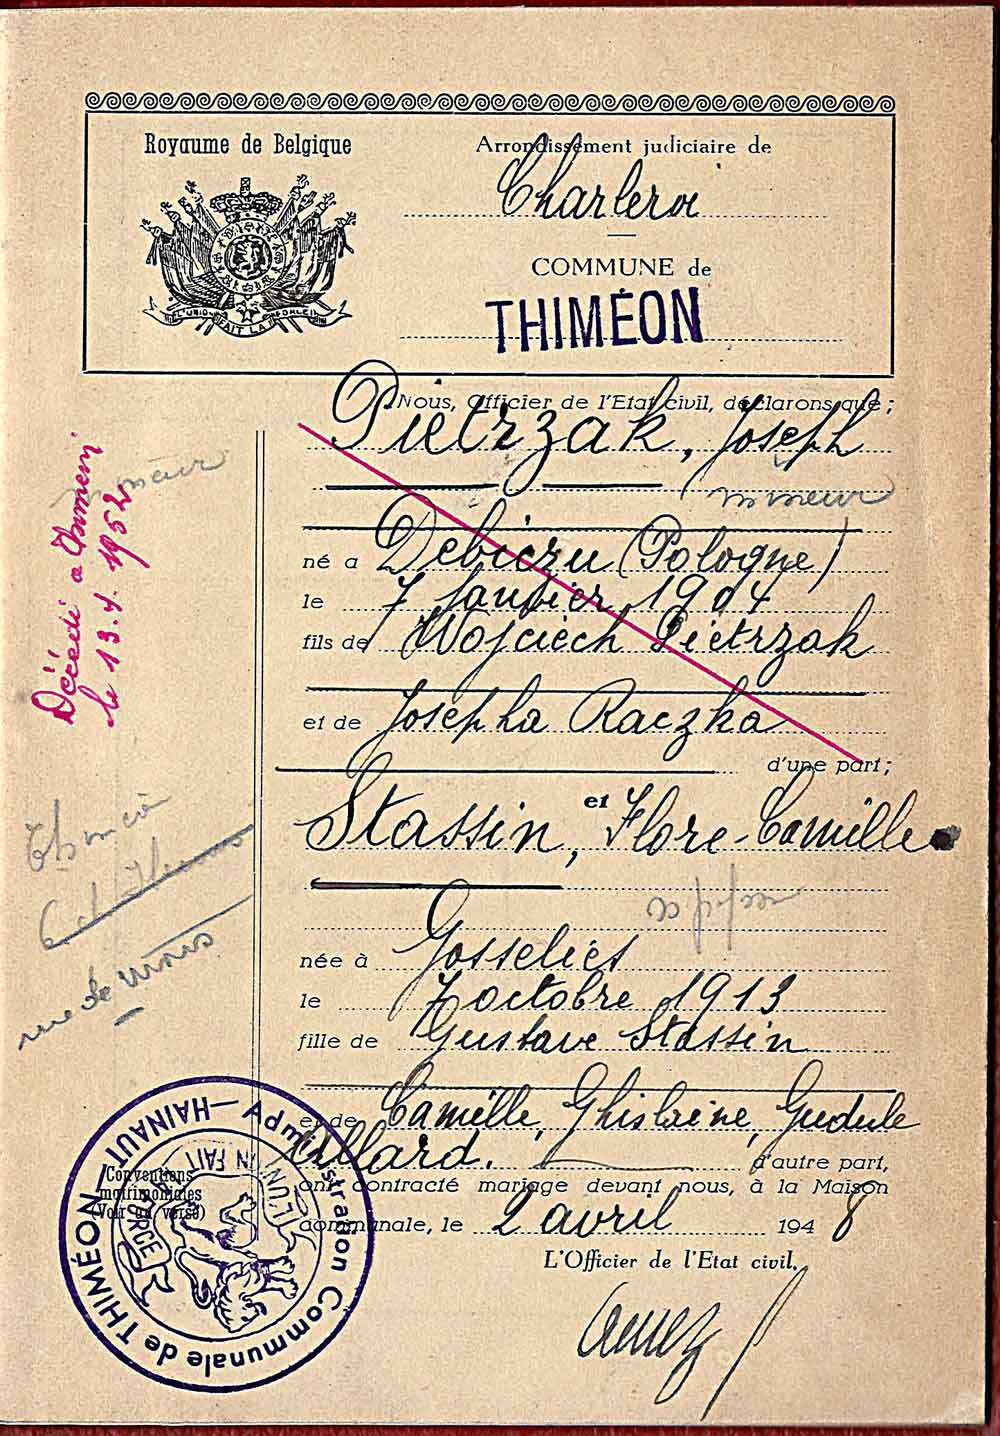 Royaume de Belgique
L'UNION FAIT LA FORCE
Arrondissement judiciaire de
Charleroi
COMMUNE de
THIMÉON
Nous, Officier de l'Etat civil, déclarons que;
Pietrzak, Joseph
mineur
né a Debiczu (Pologne)
le 7 Janvier 1904
fils de Wojciech Pietrzak
et de Josepha Raczka
d'une part;
et
Stassin, Flore-Camille
née à Gosselies
le 7 octobre 1913
fille de Gustave Stassin
et de Camille, Ghislaine, Gudule
Allard. d'autre part,
ont contracté mariage devant nous, à la Maison
communale, le 2 avril 1948
L'Officier de l'Etat civil,
mineur
Décédé a Thiméon
le 13.4.1952
rue de Mons
Conventions
matrimoniales
(Voir au verso)
Administration Communale de THIMÉON — HAINAUT —
L'UNION FAIT LA FORCE